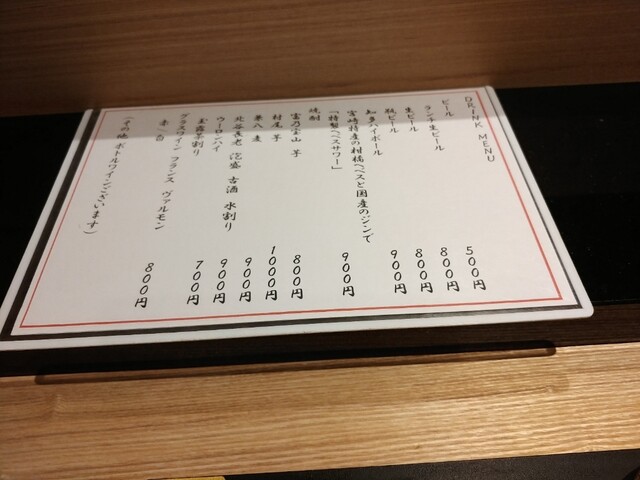 DRINK MENU
ビール
ランチ生ビール 500円
生ビール 800円
瓶ビール 800円
知多ハイボール 900円
宮崎特産の柑橘へべスと国産のジンで
「特製へべスサワー」 900円
焼酎
富乃宝山 芋 800円
村尾 芋 1000円
兼八 麦 900円
北谷長老 泡盛 古酒 水割り 900円
ウーロンハイ 700円
玉露茶割り
グラスワイン フランス ヴァルモン
赤/白 800円
(その他 ボトルワインございます)